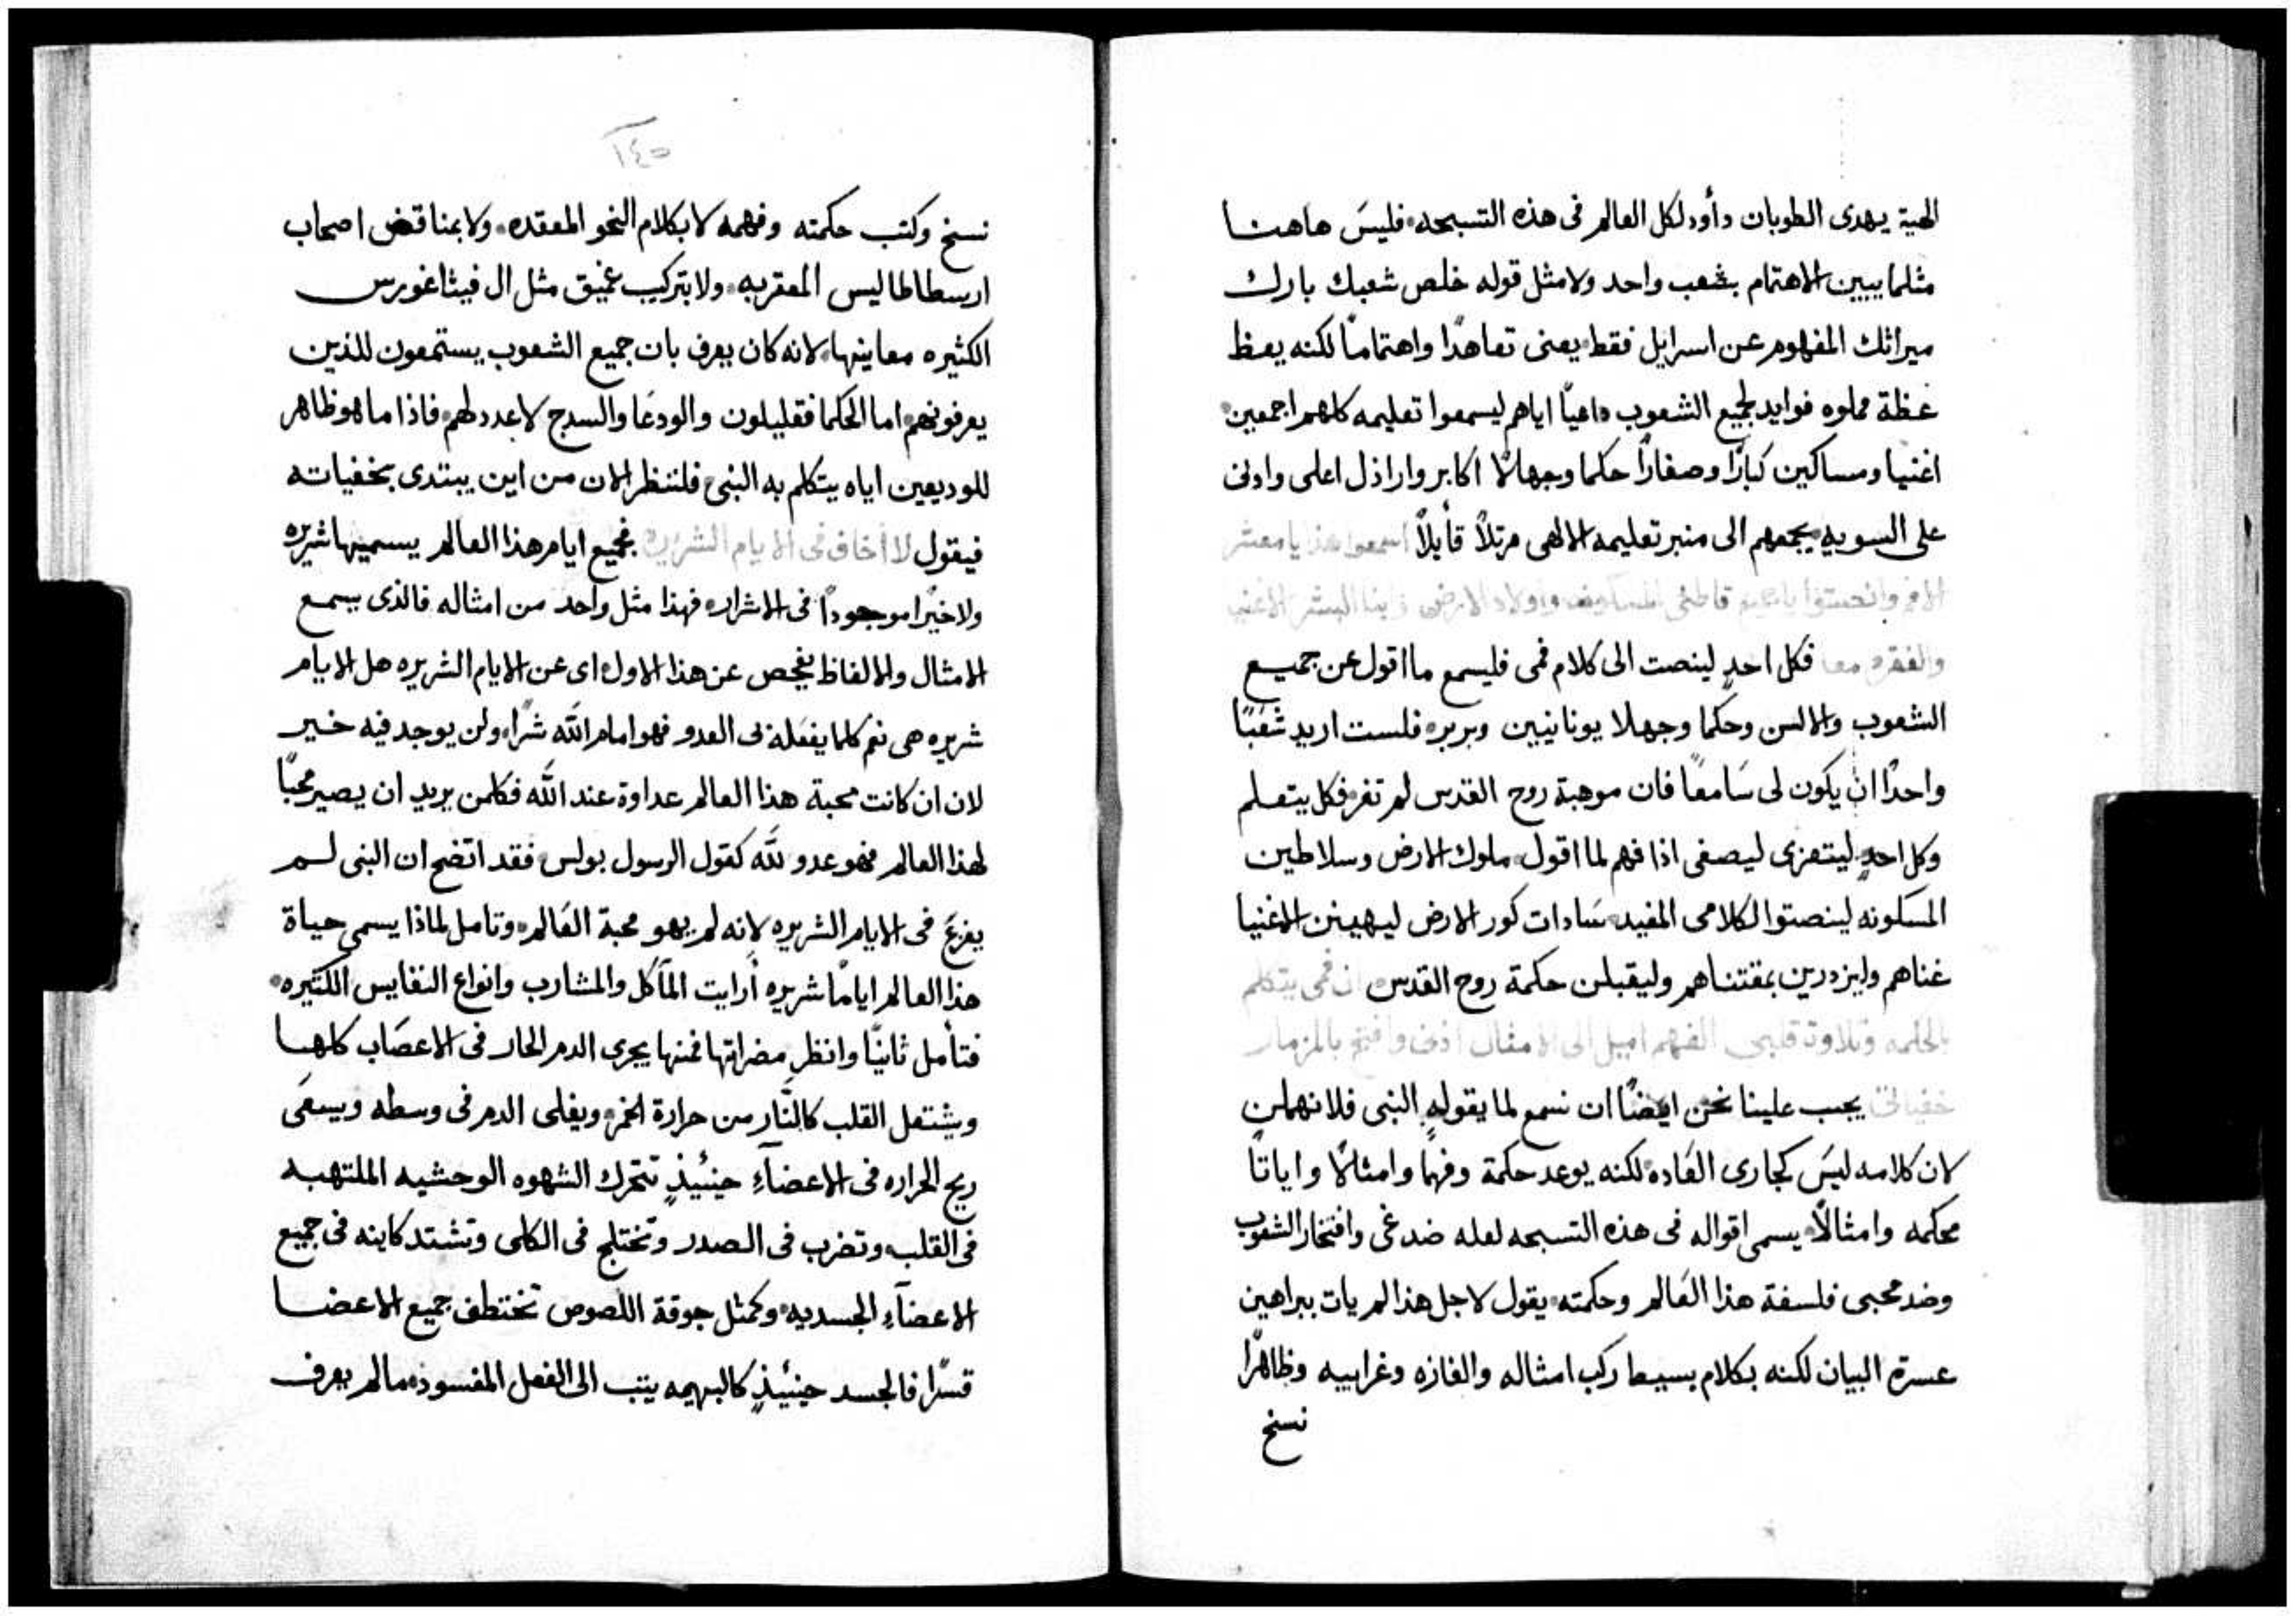 الهية يهدى الطوبان داود لكل العالم فى هذه التسبحه فليسَ هاهنا
مثلما يبين الاهتمام بشعب واحد ولا مثل قوله خلص شعبك بارك
ميراثك المفهوم عن اسرايل فقط يعنى تعاهدًا واهتمامًا لكنه يعظ
عظة مملوه فوايد لجميع الشعوب داعيًا اياهم ليسمعوا تعليمه كلهم اجمعين
اغنيا ومساكين كبارًا وصغارًا حكما وجهالًا اكابر واراذل اعلى وادنى
على السويه يجمعهم الى منبر تعليمه الالهى مرتلًا قايلًا اسمعوا هذا يا معشر
الامم وانصتوا يا جميع قاطنى المسكونه واولاد الارض وابنا البشر الاغنيا
والفقرا معا فكل احدٍ لينصت الى كلام فمى فليسمع ما اقول عن جميع
الشعوب والالسن وحكما وجهلا يونانيين وبربر فلست اريد شعبًا
واحدًا ان يكون لى سَامعًا فان موهبة روح القدس لم تفرز فكل يتعلم
وكل احدٍ ليتعزى ليصغى اذا فهم لما اقول ملوك الارض وسلاطين
المسكونه لينصتوا لكلامى المفيد سَادات كور الارض ليهينن الاغنيا
غناهم وليزدرين بمقتناهم وليقبلن حكمة روح القدس ان فمى يتكلم
بالحكمه وتلاوة قلبى الفهم اميل الى الامثال اذنى وافتح بالمزمار
خفياتى يجب علينا نحن ايضًا ان نسمع لما يقوله النبى فلا نهملن
لان كلامه ليسَ كجارى العَاده لكنه يوعد حكمة وفهمًا وامثالًا واياتًا
محكمه وامثالًا يسمى اقواله فى هذه التسبحه لعله ضد غى وافتخار الشعوب
وضد محبى فلسفة هذا العَالم وحكمته يقول لاجل هذا لم يات ببراهين
عسرة البيان لكنه بكلام بسيط ركب امثاله والغازه وغرايبه وظاهرًا
نسخ
١٤٥
نسخ وكتب حكمته وفهمه لا بكلام النحو المعقده ولا بمناقض اصحاب
ارسطاطاليس المعتربه ولا بتركيب عميق مثل ال فيثاغورس
الكثيره معاينها لانه كان يعرف بان جميع الشعوب يستمعون للذين
يعرفونهم اما الحكما فقليلون والودعَا والسدج لا عدد لهم فاذا ما هو ظاهر
للوديعين اياه يتكلم به النبى فلننظر الان من اين يبتدى بخفياته
فيقول لا اخاف فى الايام الشريره فجميع ايام هذا العالم يسميها شريره
ولا خيرًا موجودًا فى الاشرار فهذا مثل واحد من امثاله فالذى يسمع
الامثال والالفاظ يفحص عن هذا الاول اى عن الايام الشريره هل الايام
شريره هى نعم كلما يفعَله بى العدو فهو امام الله شرًا ولن يوجد فيه خير
لان ان كانت محبة هذا العالم عداوة عند الله فكلمن يريد ان يصير محبًا
لهذا العالم فهو عدو لله كقول الرسول بولس فقد اتضح ان النبى لم
يفزعَ فى الايام الشريره لانه لم يهو محبة العَالم وتامل لماذا يسمى حياة
هذا العالم ايامًا شريره أرايت المآكل والمشارب وانواع النفايس الكثيره
فتأمل ثانيًا وانظر مضراتها فمنها يجرى الدم الحار فى الاعصَاب كلها
ويشتعل القلب كالنَّار من حرارة الخمر ويغلى الدم فى وسطه ويسعَى
ريح الحراره فى الاعضآءِ حينئيذٍ تتحرك الشهوه الوحشيه الملتهبه
فى القلب وتضرب فى الصدر وتختلج فى الكلى وتشتد كاينه فى جميع
الاعضآءِ الجسديه وكمثل جوقة اللصوص تختطف جميع الاعضا
قسرًا فالجسد حينئيذٍ كالبهيمه يتب الى الفعل المفسود ما لم يعرف